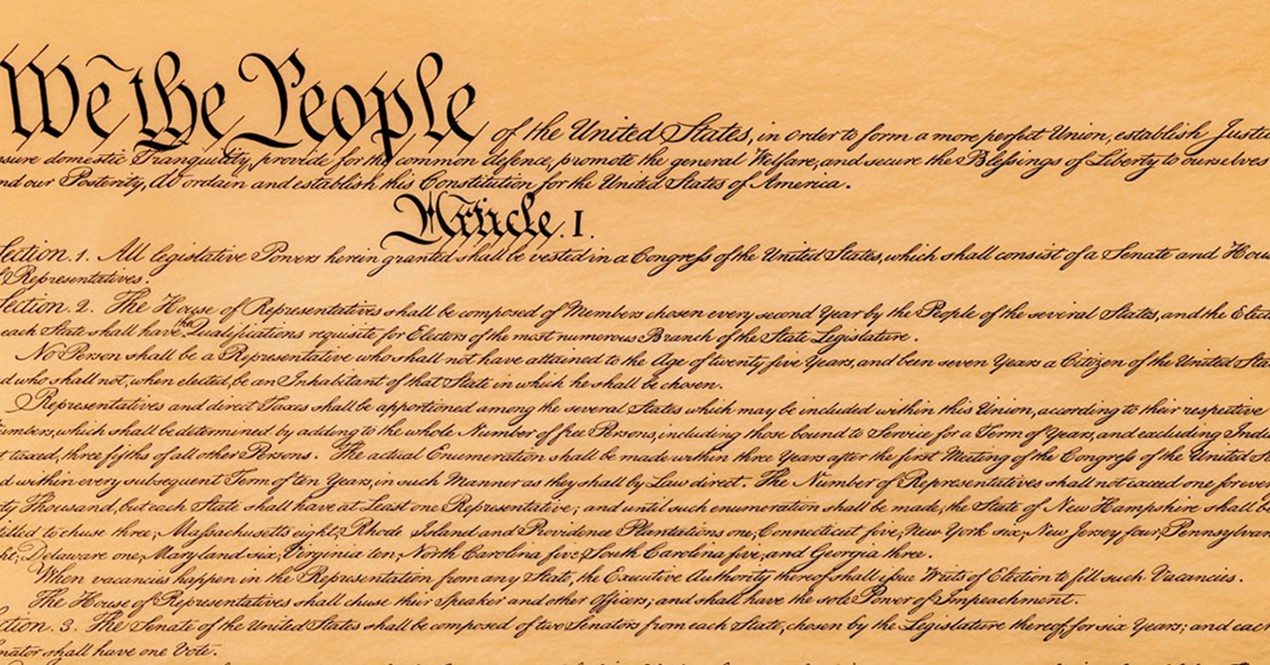 We the People of the United States, in order to form a more perfect Union, establish Justi
nsure domestic Tranquility, provide for the common defence, promote the general Welfare, and secure the Blessings of Liberty to ourselves
nd our Posterity, do ordain and establish this Constitution for the United States of America.
Article. I.
Section. 1. All legislative Powers herein granted shall be vested in a Congress of the United States, which shall consist of a Senate and Hou
f Representatives.
Section. 2. The House of Representatives shall be composed of Members chosen every second Year by the People of the several States, and the Elect
each State shall have the Qualifications requisite for Electors of the most numerous Branch of the State Legislature.
No Person shall be a Representative who shall not have attained to the Age of twenty five Years, and been seven Years a Citizen of the United Sta
d who shall not, when elected, be an Inhabitant of that State in which he shall be chosen.
Representatives and direct Taxes shall be apportioned among the several States which may be included within this Union, according to their respective
umbers, which shall be determined by adding to the whole Number of free Persons, including those bound to Service for a Term of Years, and excluding Indi
t taxed, three fifths of all other Persons. The actual Enumeration shall be made within three Years after the first Meeting of the Congress of the United St
d within every subsequent Term of ten Years, in such Manner as they shall by Law direct. The Number of Representatives shall not exceed one for ever
ty Thousand, but each State shall have at Least one Representative; and until such enumeration shall be made, the State of New Hampshire shall be
itled to chuse three, Massachusetts eight, Rhode Island and Providence Plantations one, Connecticut five, New York six, New Jersey four, Pennsylvan
ht, Delaware one, Maryland six, Virginia ten, North Carolina five, South Carolina five, and Georgia three.
When vacancies happen in the Representation from any State, the Executive Authority thereof shall issue Writs of Election to fill such Vacancies.
The House of Representatives shall chuse their Speaker and other Officers; and shall have the sole Power of Impeachment.
ction. 3. The Senate of the United States shall be composed of two Senators from each State, chosen by the Legislature thereof, for six Years; and each
nator shall have one Vote.